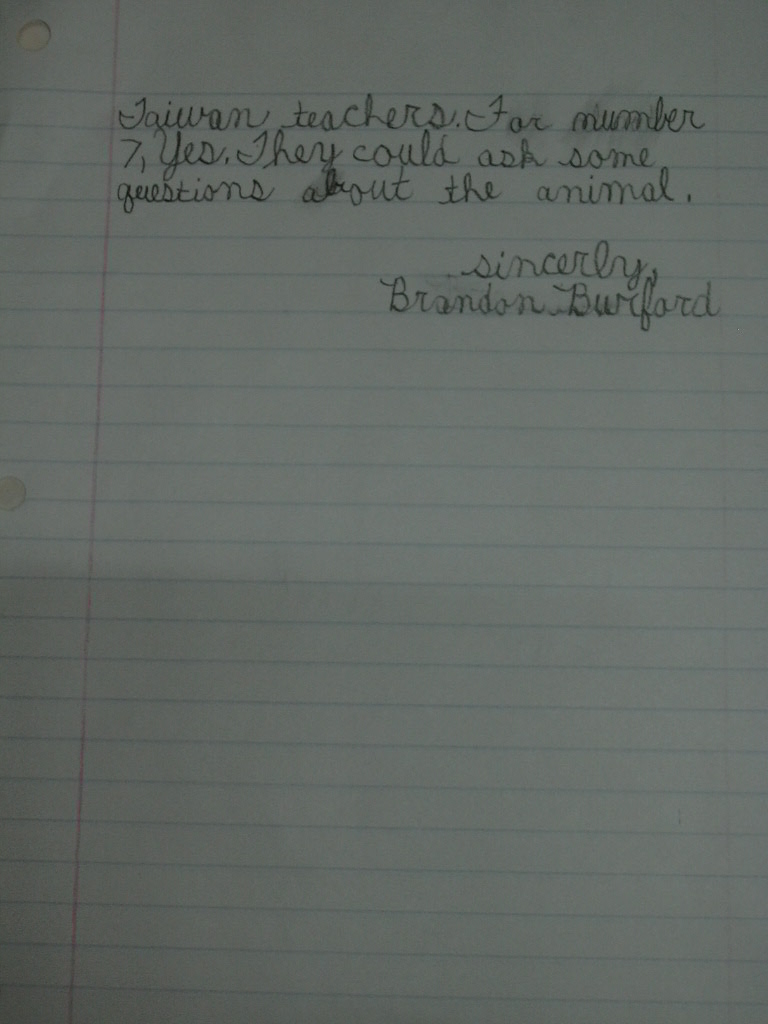 Taiwan teachers. For number
7, Yes. They could ask some
questions about the animal.
sincerly,
Brandon Burford